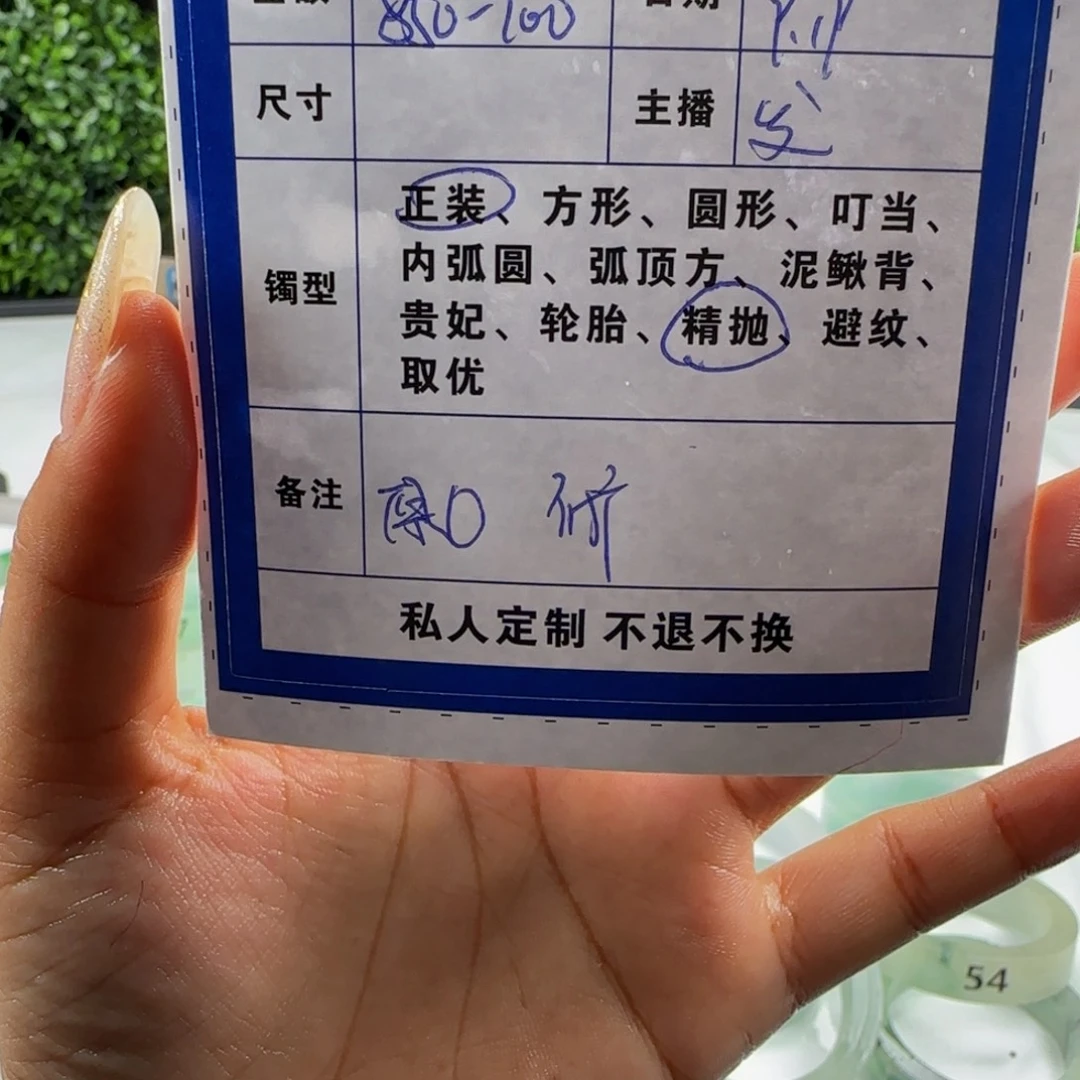 850-100
尺寸 主播
镯型
正装、方形、圆形、叮当、
内弧圆、弧顶方、泥鳅背、
贵妃、轮胎、精抛、避纹、
取优
备注
私人定制 不退不换
54